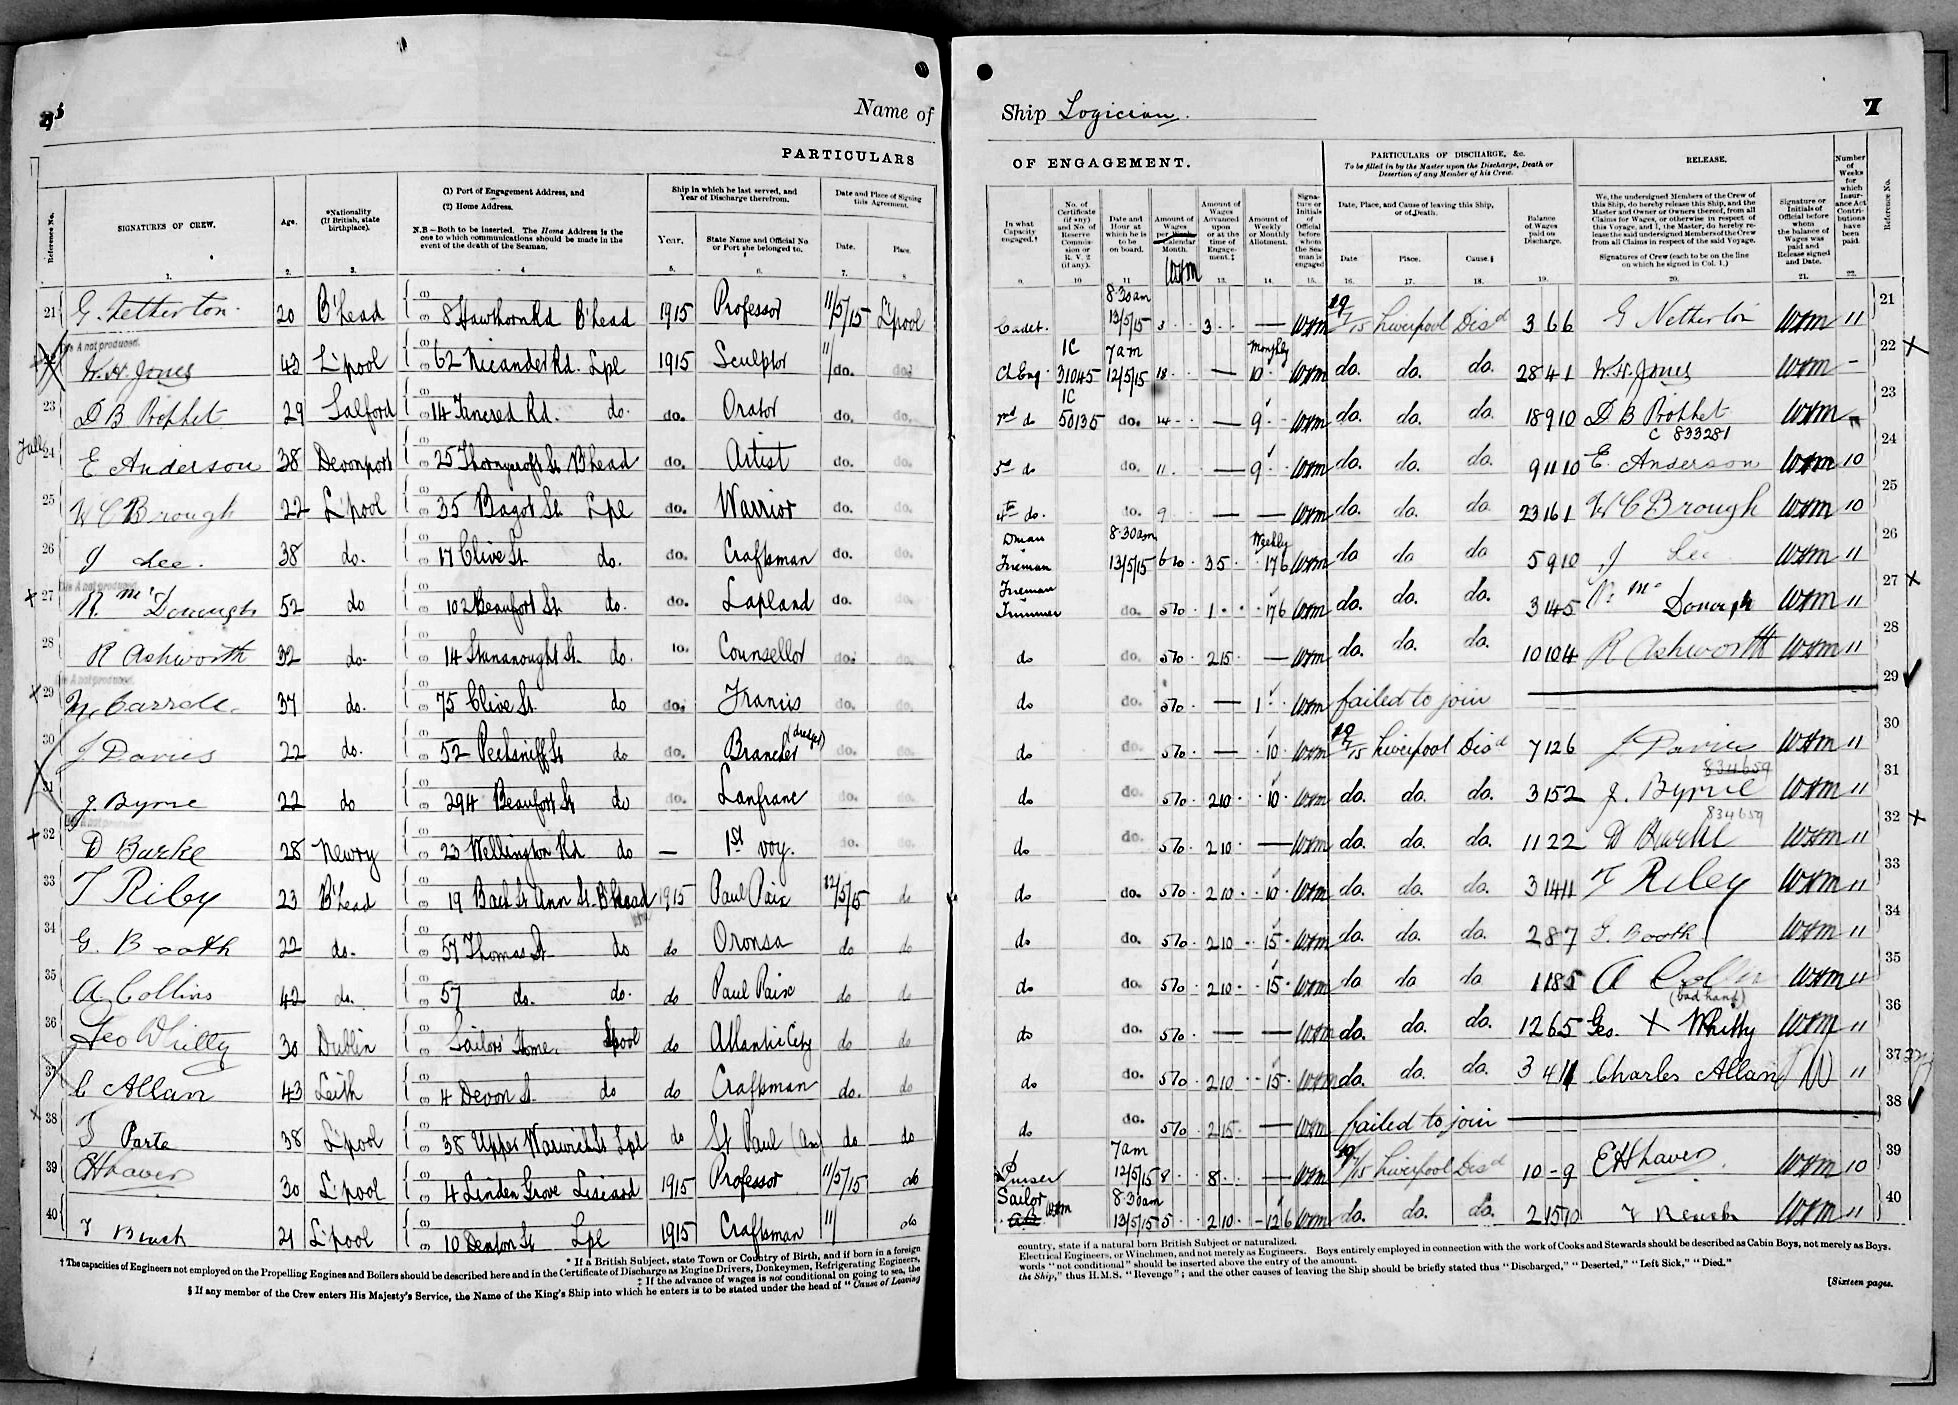 Name of
PARTICULARS
Reference No.
SIGNATURES OF CREW.
Age.
*Nationality (If British, state birthplace).
(1) Port of Engagement Address, and
(2) Home Address.
N.B.—Both to be inserted. The Home Address is the one to which communications should be made in the event of the death of the Seaman.
Ship in which he last served, and Year of Discharge therefrom.
Year.
State Name and Official No or Port she belonged to.
Date and Place of Signing this Agreement.
Date.
Place.
1. 2. 3. 4 5. 6. 7. 8
21 G. Netherton. 20 B'head 8 Hawthorn Rd B'head 1915 Professor 11/5/15 L'pool
W.H. Jones 43 L'pool 62 Nicander Rd. Lpl 1915 Sculptor 11/ do. do.
23 D B Prophet 29 Salford 14 Tancred Rd. do. do. Orator do. do.
24 E Anderson 38 Devonport 25 Thornycroft St B'head do. Artist do. do.
25 W C Brough 22 L'pool 35 Bagot St. Lpl do. Warrior do. do.
26 J Lee. 38 do. 17 Clive St. do. do. Craftsman do. do.
27 R. McDonough 52 do 102 Beaufort St. do. do. Lapland do. do.
28 R Ashworth 32 do. 14 Stananought St. do. do. Counsellor do. do.
29 M Carroll. 37 do. 75 Clive St. do do. Francis do. do.
30 J Davies 22 do. 52 Pecksniff St do do. Brancker (dredger) do. do.
31 J. Byrne 22 do 294 Beaufort St do do. Lanfranc do. do.
32 D Burke 28 Newry 23 Wellington Rd do — 1st voy. do. do.
33 T Riley 23 B'head 19 Back St Ann St. B'head 1915 Paul Paix 12/5/15 do
34 G. Booth 22 do. 57 Thomas St do do Oronsa do do
35 A Collins 42 do. 57 do. do. do Paul Paix do do
36 Geo Whitty 30 Dublin Sailors Home. L'pool do Atlantic City do do
37 C Allan 43 Leith 4 Devon St. do do Craftsman do. do
38 T Parte 38 L'pool 38 Upper Warwick St Lpl do St Paul (Am) do do
39 EHhaver 30 L'pool 4 Linden Grove Liscard 1915 Professor 11/5/15 do
40 T Bench 21 L'pool 10 Denton St Lpl 1915 Craftsman 11/ do
* If a British Subject, state Town or Country of Birth, and if born in a foreign
† The capacities of Engineers not employed on the Propelling Engines and Boilers should be described here and in the Certificate of Discharge as Engine Drivers, Donkeymen, Refrigerating Engineers,
‡ If the advance of wages is not conditional on going to sea, the
§ If any member of the Crew enters His Majesty's Service, the Name of the King's Ship into which he enters is to be stated under the head of "Cause of Leaving
Ship Logician.
7
OF ENGAGEMENT.
PARTICULARS OF DISCHARGE, &c.
To be filled in by the Master upon the Discharge, Death or Desertion of any Member of his Crew.
RELEASE.
Number of Weeks for which Insurance Act Contributions have been paid.
Reference No.
In what Capacity engaged.†
No. of Certificate (if any) and No. of Reserve Commission or R.V. 2 (if any).
Date and Hour at which he is to be on board.
Amount of Wages per Calendar Month.
Amount of Wages Advanced upon or at the time of Engagement.‡
Amount of Weekly or Monthly Allotment.
Signature or Initials of Official before whom the Seaman is engaged
Date, Place, and Cause of leaving this Ship, or of Death.
Date. Place. Cause.§
Balance of Wages paid on Discharge.
We, the undersigned Members of the Crew of this Ship, do hereby release this Ship, and the Master and Owner or Owners thereof, from all Claims for Wages, or otherwise in respect of this Voyage, and I, the Master, do hereby release the said undersigned Members of the Crew from all Claims in respect of the said Voyage.
Signatures of Crew (each to be on the line on which he signed in Col. 1.)
Signature or Initials of Official before whom the balance of Wages was paid and Release signed and Date.
9. 10 11 13. 14. 15. 16. 17. 18. 19. 20. 21. 22.
Cadet. 8.30am 13/5/15 3 3 — WHM Liverpool Disd 3 6 6 G Netherton WHM 11 21
Ch Eng. 1C 31045 7am 12/5/15 18 — Monthly 10 WHM do. do. do. 28 4 1 W.H. Jones WHM — 22
2nd do 1C 50135 do. 14 — 9 WHM do. do. do. 18 9 10 D B Prophet C 833281 WHM — 23
3rd do do. 11 — 9 WHM do. do. do. 9 11 10 E. Anderson WHM 10 24
4th do. do. 9 — — WHM do. do. do. 23 16 1 W C Brough WHM 10 25
Dman Fireman 8.30am 13/5/15 6 10 3 5 Weekly 17 6 WHM do do do 5 9 10 J Lee WHM 11 26
Fireman Trimmer do. 5 10 1 17 6 WHM do. do. do. 3 14 5 R. Mc Donough WHM 11 27
do do. 5 10 2 15 — WHM do. do. do. 10 10 4 R Ashworth WHM 11 28
do do. 5 10 — 1 WHM failed to join 29
do do. 5 10 — 10 WHM Liverpool Disd 7 12 6 J Davies WHM 11 30
do do. 5 10 2 10 10 WHM do. do. do. 3 15 2 J. Byrne 834659 WHM 11 31
do do. 5 10 2 10 — WHM do. do. do. 11 2 2 D Burke WHM 11 32
do. do. 5 10 2 10 10 WHM do. do. do. 3 14 11 T Riley WHM 11 33
do do. 5 10 2 10 15 WHM do. do. do. 2 8 7 G. Booth WHM 11 34
do do. 5 10 2 10 15 WHM do do do. 1 18 5 A Collins WHM 11 35
do do. 5 10 — — WHM do. do. do. 12 6 5 Geo. X Whitty (bad hand) WHM 11 36
do do. 5 10 2 10 15 WHM do. do. do. 3 4 11 Charles Allan 11 37
do do. 5 10 2 15 — WHM failed to join 38
Purser 7am 12/5/15 8 8 — WHM Liverpool Disd 10 - 9 EHhaver WHM 10 39
Sailor WHM AB 8.30am 13/5/15 5 2 10 12 6 WHM do. do. do. 2 15 10 T Bench WHM 11 40
country, state if a natural born British Subject or naturalized.
Electrical Engineers, or Winchmen, and not merely as Engineers. Boys entirely employed in connection with the work of Cooks and Stewards should be described as Cabin Boys, not merely as Boys.
words "not conditional" should be inserted above the entry of the amount.
the Ship," thus H.M.S. "Revenge"; and the other causes of leaving the Ship should be briefly stated thus "Discharged," "Deserted," "Left Sick," "Died."
[Sixteen pages.